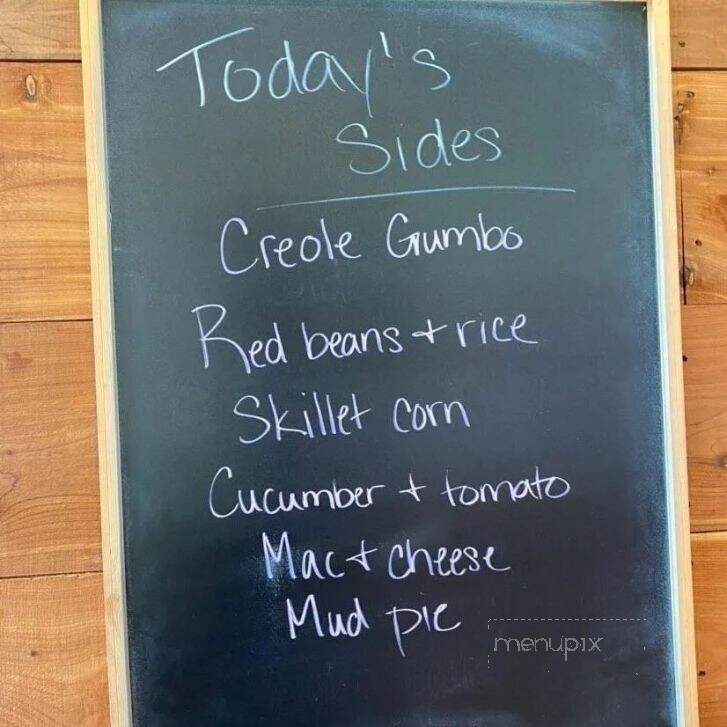 Today's
Sides
Creole Gumbo
Red beans + rice
Skillet corn
Cucumber + tomato
Mac + cheese
Mud pie
menupix